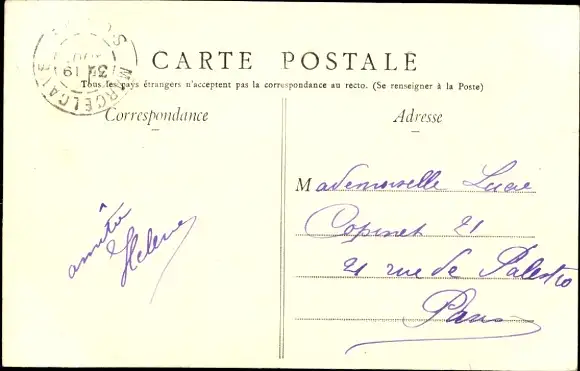 CARTE POSTALE
Tous les pays étrangers n'acceptent pas la correspondance au recto. (Se renseigner à la Poste)
Correspondance
Adresse
amitiés
Helene
Mademoiselle Lucie
Copinet 21
21 rue de Palestro
Paris